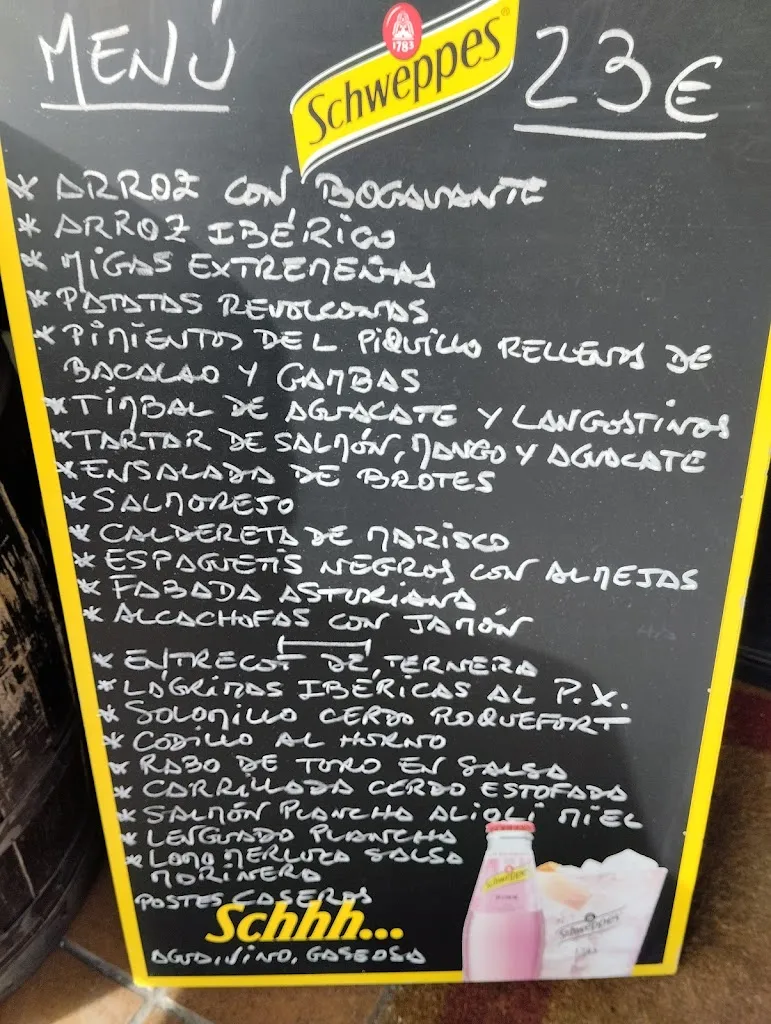 MENÚ
1783
Schweppes
23€
* ARROZ CON BOGAVANTE
* ARROZ IBÉRICO
* MIGAS EXTREMEÑAS
* PATATAS REVOLCONAS
* PIMIENTOS DEL PIQUILLO RELLENOS DE
BACALAO Y GAMBAS
* TIMBAL DE AGUACATE Y LANGOSTINOS
* TARTAR DE SALMÓN, MANGO Y AGUACATE
* ENSALADA DE BROTES
* SALMOREJO
* CALDERETA DE MARISCO
* ESPAGUETIS NEGROS CON ALMEJAS
* FABADA ASTURIANA
* ALCACHOFAS CON JAMÓN
* ENTRECOT DE TERNERA
* LÁGRIMAS IBÉRICAS AL P.X.
* SOLOMILLO CERDO ROQUEFORT
* CODILLO AL HORNO
* RABO DE TORO EN SALSA
* CARRILLADA CERDO ESTOFADA
* SALMÓN PLANCHA ALIOLI MIEL
* LENGUADO PLANCHA
* LOMO MERLUZA SALSA
MARINERA
POSTES CASEROS
Schhh...
AGUA, VINO, GASEOSA
Schweppes
Schweppes
1783